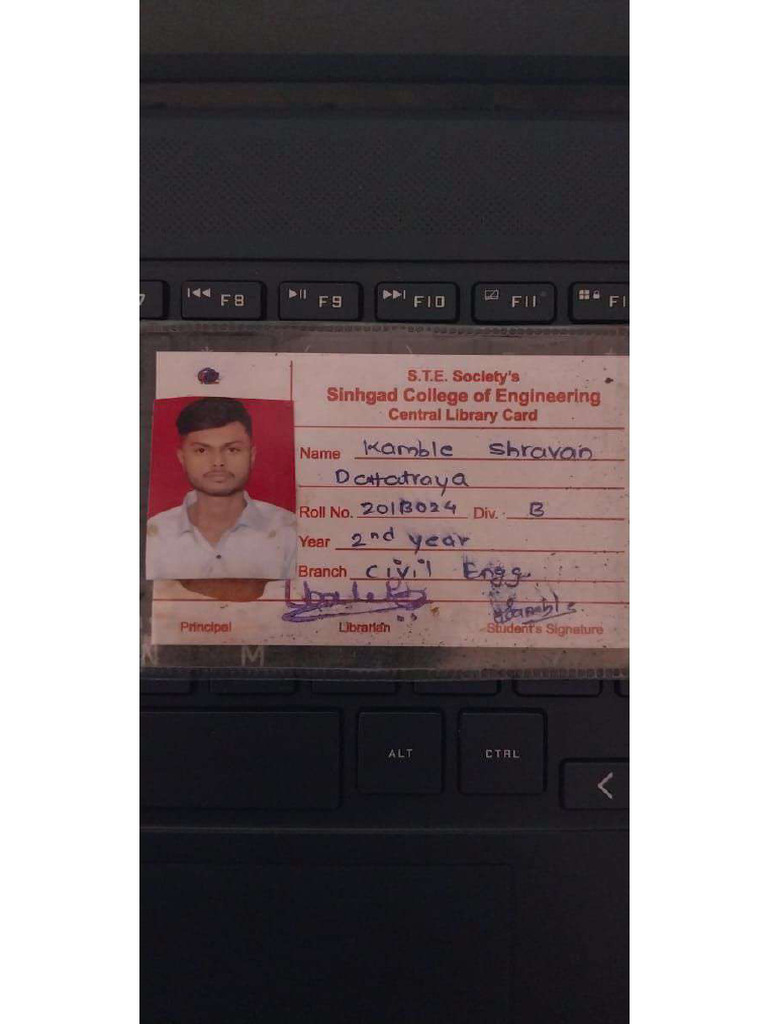 7 F8 F9 F10 F11 F1
S.T.E. Society's
Sinhgad College of Engineering
Central Library Card
Name Kamble Shravan
Dattatraya
Roll No. 201B024 Div. B
Year 2nd year
Branch Civil Engg.
Kamble
Principal Librarian Student's Signature
N M
ALT CTRL